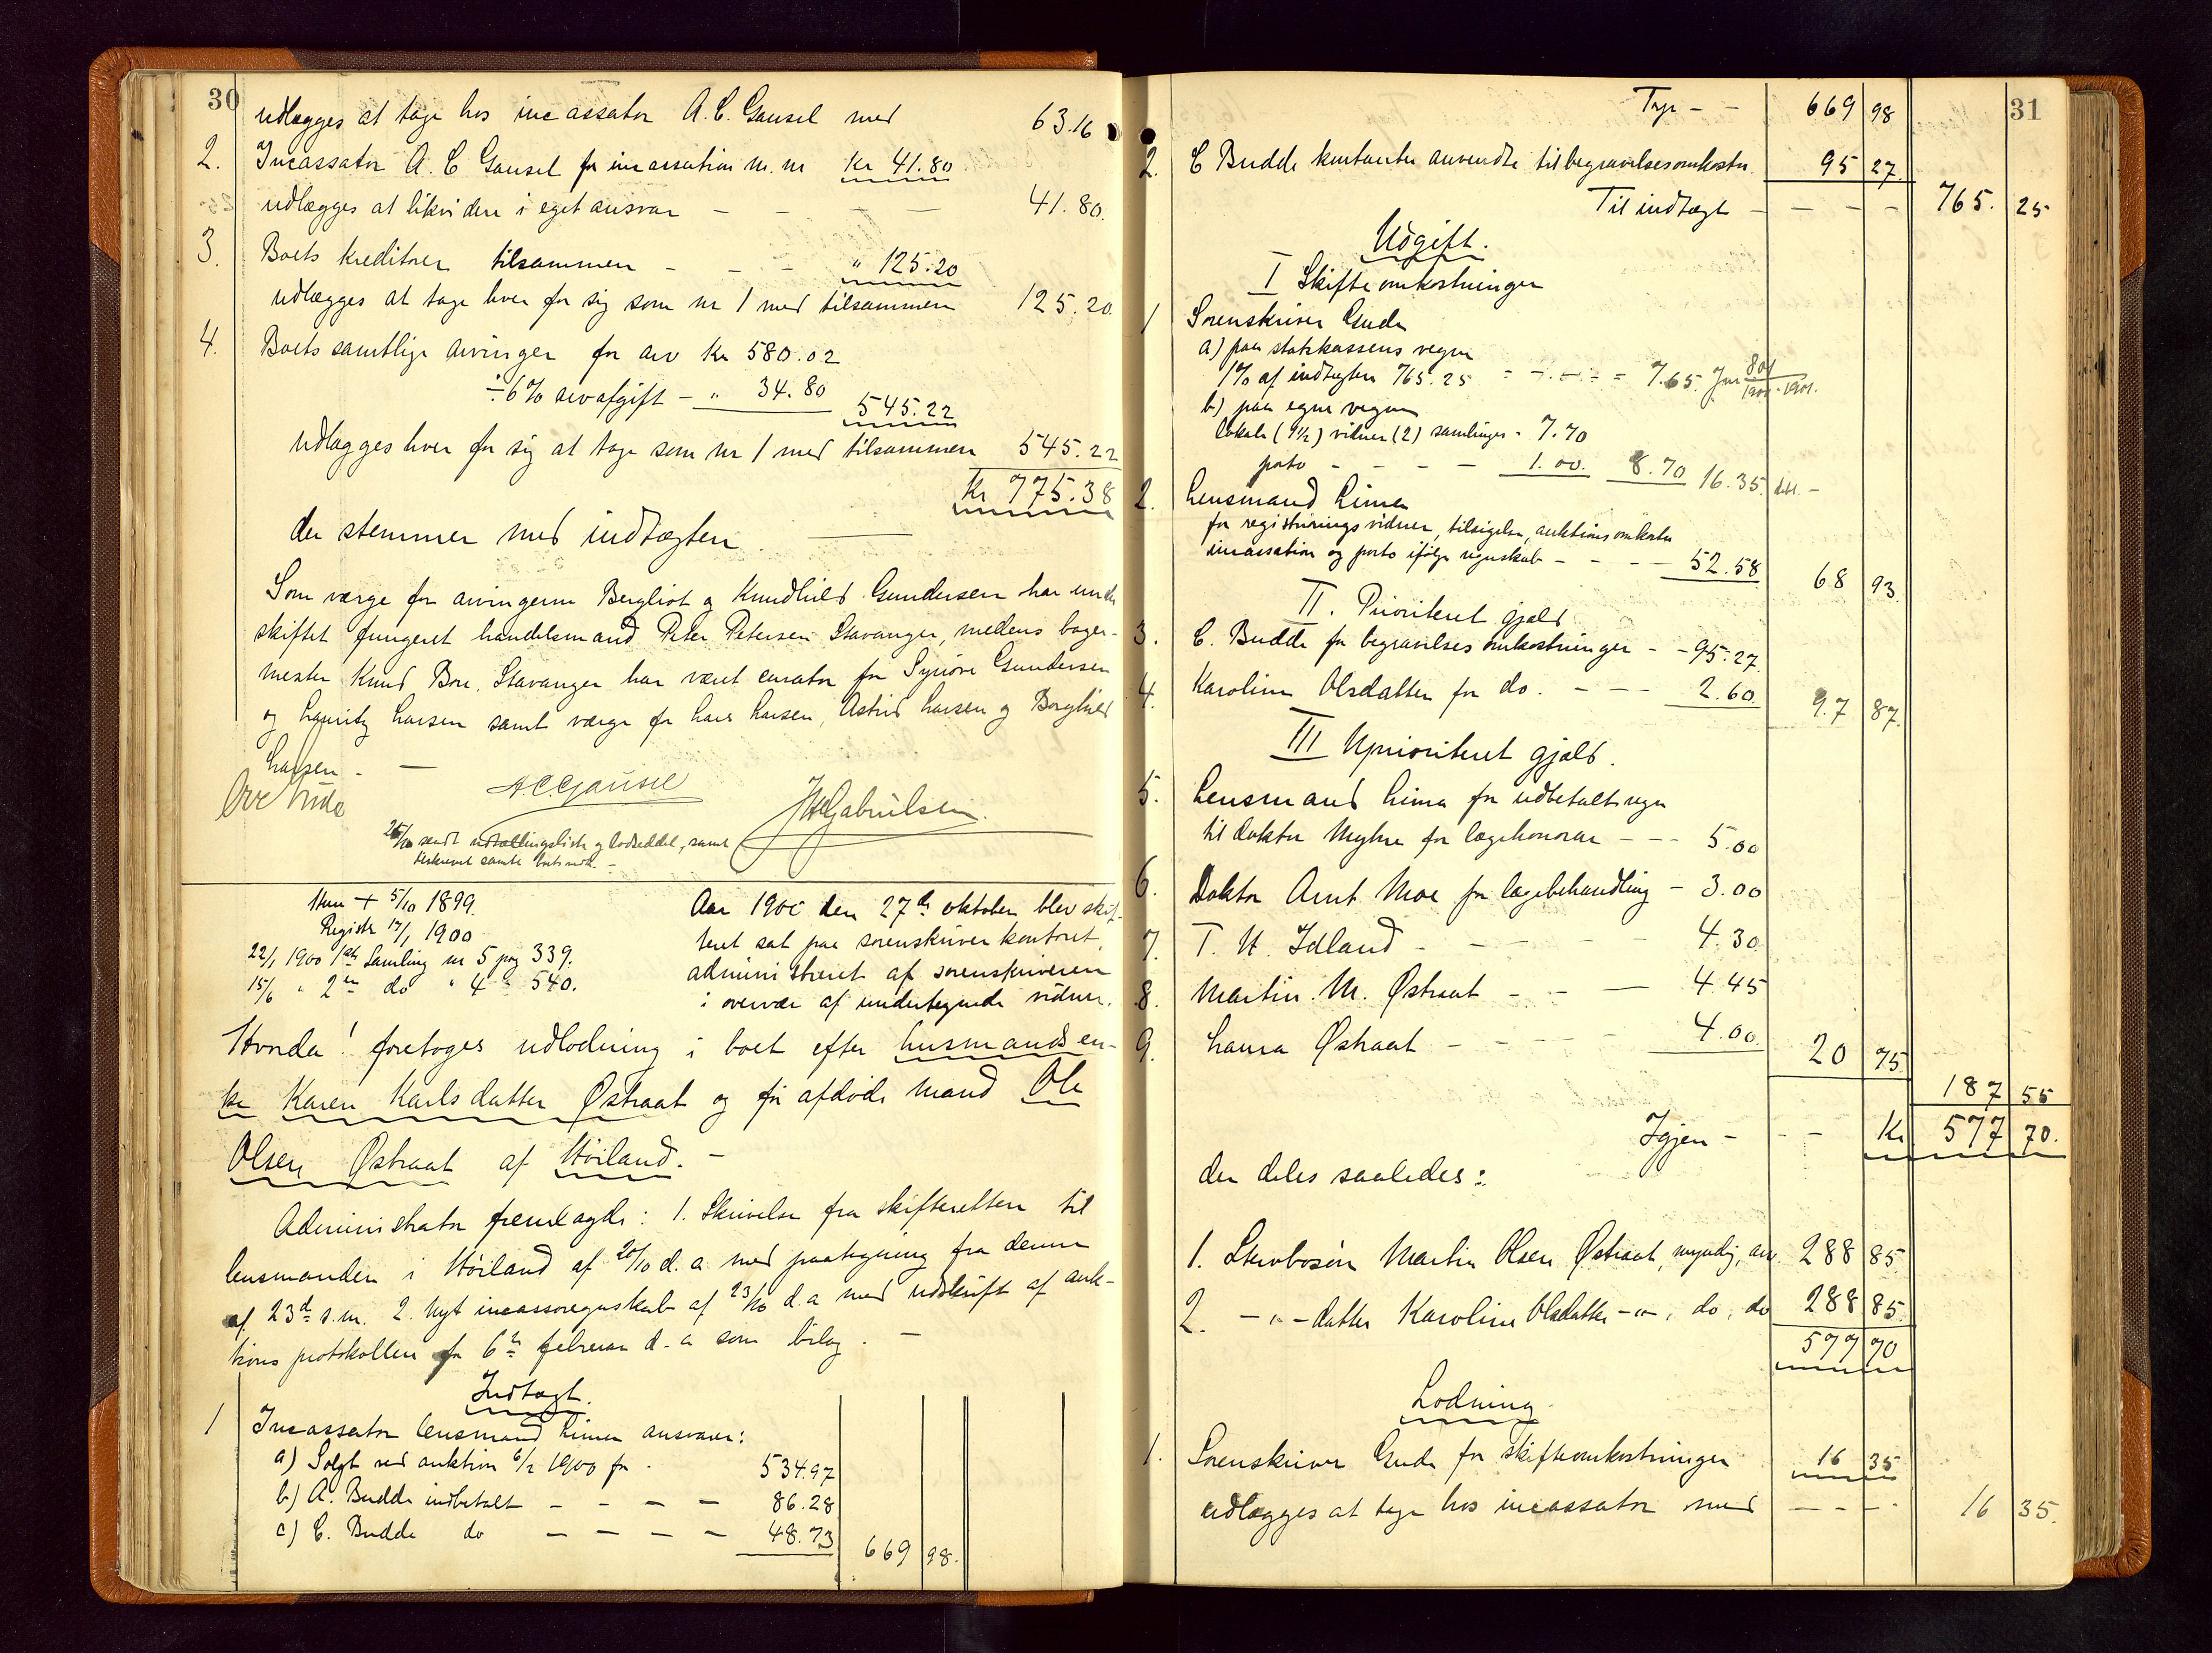 30
udlægges at tage hos incassator A. C. Gausel med 63.16
2. Incassator A. C Gausel for incassation m. m Kr 41.80
udlægges at likvidere i eget ansvar - - - - 41.80.
3. Boets kreditorer tilsammen - - - " 125.20
udlægges at tage hver for sig som nr 1 med tilsammen 125.20.
4. Boets samtlige arvinger for arv Kr 580.02
÷ 6% arvafgift - " 34.80 545.22
udlægges hver for sig at tage som nr 1 med tilsammen 545.22
Kr 775.38
der stemmer med indtægten.
Som værge for arvingerne Bergliot og Knudhild Gundersen har under
skiftet fungeret handelsmand Peter Petersen Stavanger, medens bager-
mester Knud Bore, Stavanger har været curator for Synöve Gundersen
og Lauritz Larsen samt værge for Lars Larsen, Astrid Larsen og Borghild
Larsen. -
Ove Gude A C Gausel J H Gabrielsen.
25/10 sendt udtællingsliste og lodseddel, samt
Hun + 5/10 1899.
Registr 17/1 1900
22/1 1900 1ste Samling nr 5 pag 339.
15/6 " 2en do " 4 " 540.
Aar 1900 den 27de oktober blev skif-
teret sat paa sorenskriverkontoret,
administreret af sorenskriveren
i overvær af undertegnede vidner.
Hvorda! foretoges udlodning i boet efter husmandsen-
ke Karen Karlsdatter Østraat og før afdøde mand Ole
Olsen Østraat af Höiland. -
Administrator fremlagde: 1. Skrivelse fra skifteretten til
lensmanden i Höiland af 20/10 d. a med paategning fra denne
af 23de s. m. 2. Nyt incassoregnskab af 23/10 d. a med udskrift af auk-
tions protokollen for 6te februar d. a som bilag. -
Indtægt.
1 Incassator lensmand Lima ansvarer:
a) Solgt ved auktion 6/2 1900 for - 534.97
b) A. Budde indbetalt - - - - 86.28
c) C. Budde do - - - - 48.73 669 98.
31
Trp - - 669 98
2. C Budde kontanter anvendte til begravelsesomkostn. 95 27.
Til indtægt - - - - 765. 25
Udgift.
I Skifteomkostninger
1 Sorenskriver Gude
a) paa statskassens vegne
1% af indtægten 765.25 = - - - = 7.65. Jnr 801
b) paa egne vegne
lokale (1 1/2) vidner (2) samlinger - 7.70
porto - - - - 1.00. 8.70 16.35.
2. Lensmand Lima
for registrerings vidner, tilsigelse, auktionsomkostn
incassation og porto ifølge regnskab - - - - 52.58 68 93.
II. Prioriteret gjæld
3. C. Budde for begravelses omkostninger - - 95.27.
4. Karoline Olsdatter for do. - - - 2.60. 97 87.
III Uprioriteret gjæld.
5. Lensmand Lima for udbetalt regn
til doktor Myhre for lægehonorar - - - 5.00
6. Doktor Arnt Moe for lægebehandling - 3.00
7. T. U. Idland - - - - 4.30
8. Martin M. Østraat - - - 4.45
9. Laura Østraat - - - - 4.00. 20 75
187 55
Igjen - - - Kr 577 70.
der deles saaledes:
1. Stervbosön Martin Olsen Østraat, myndig, arv 288 85
2. - " - datter Karoline Olsdatter - " -, do, do 288 85
577 70
Lodning
1. Sorenskriver Gude for skifteomkostninger 16 35
udlægges at tage hos incassator med - - - 16 35.